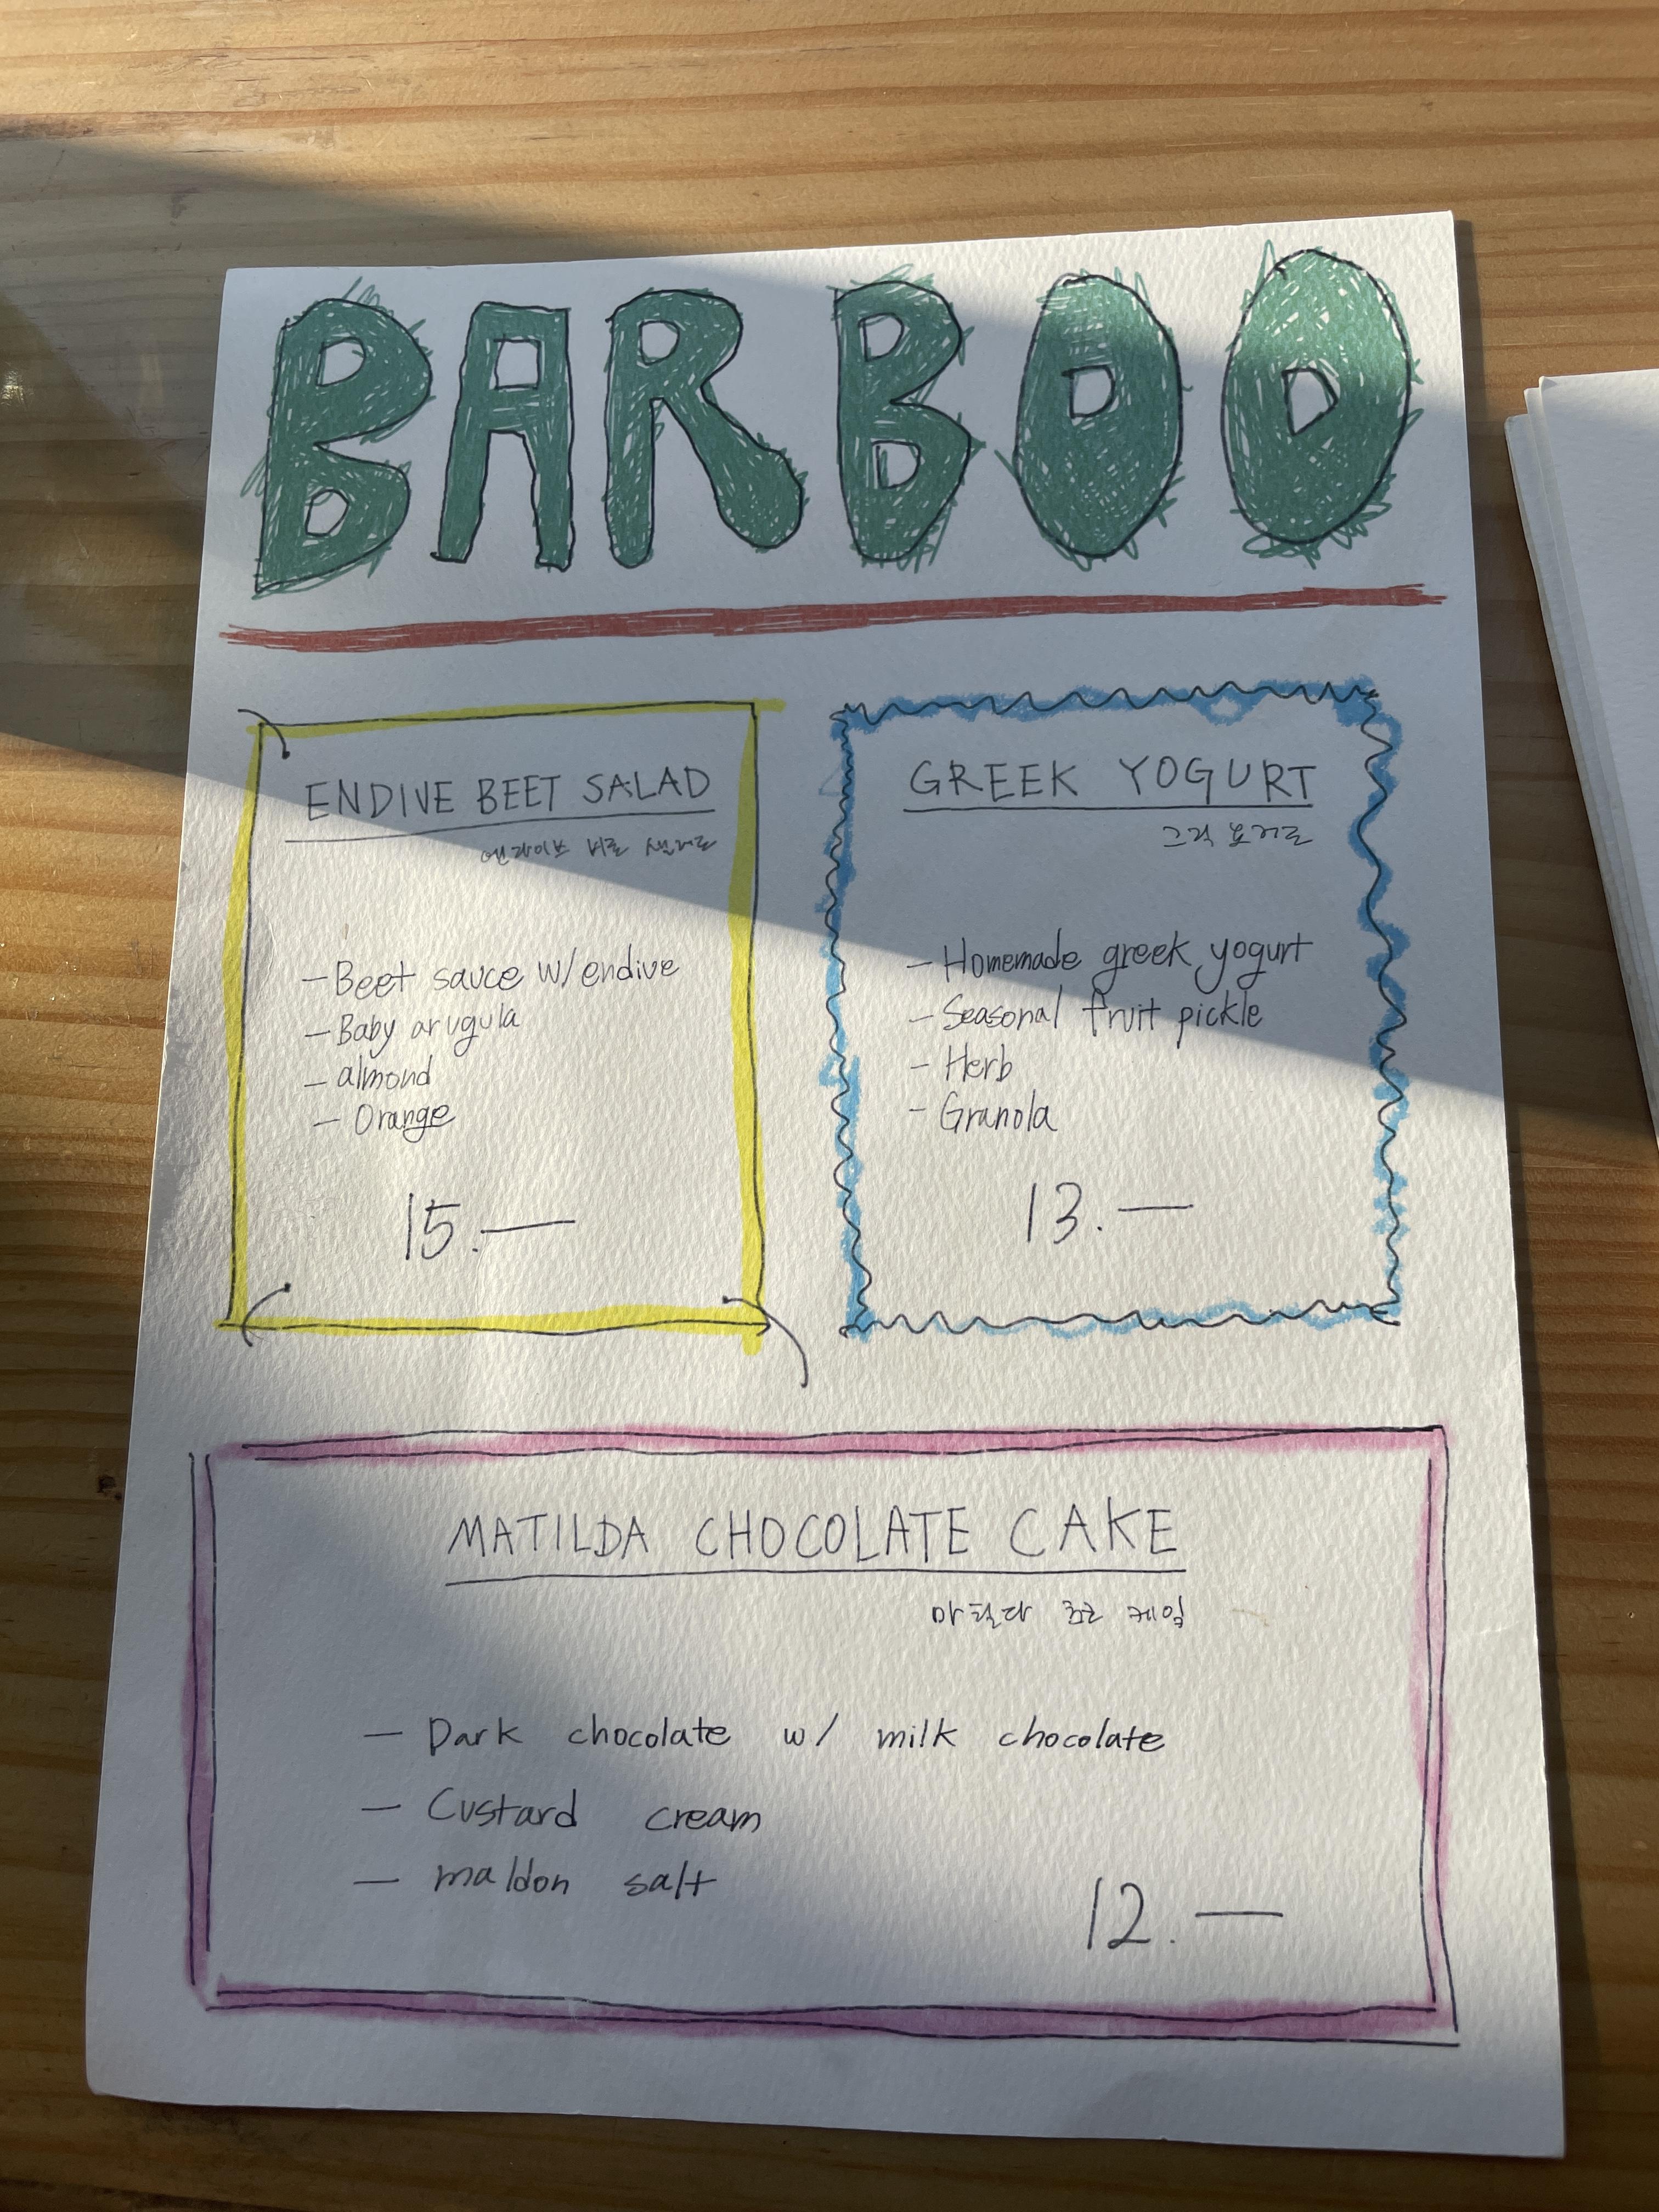 BARBOO
ENDIVE BEET SALAD
엔다이브 비트 샐러드
- Beet sauce w/endive
- Baby arugula
- almond
- Orange
15.—
GREEK YOGURT
그릭 요거트
- Homemade greek yogurt
- Seasonal fruit pickle
- Herb
- Granola
13.—
MATILDA CHOCOLATE CAKE
마틸다 초코 케잌
- Dark chocolate w/ milk chocolate
- Custard cream
- maldon salt
12.—